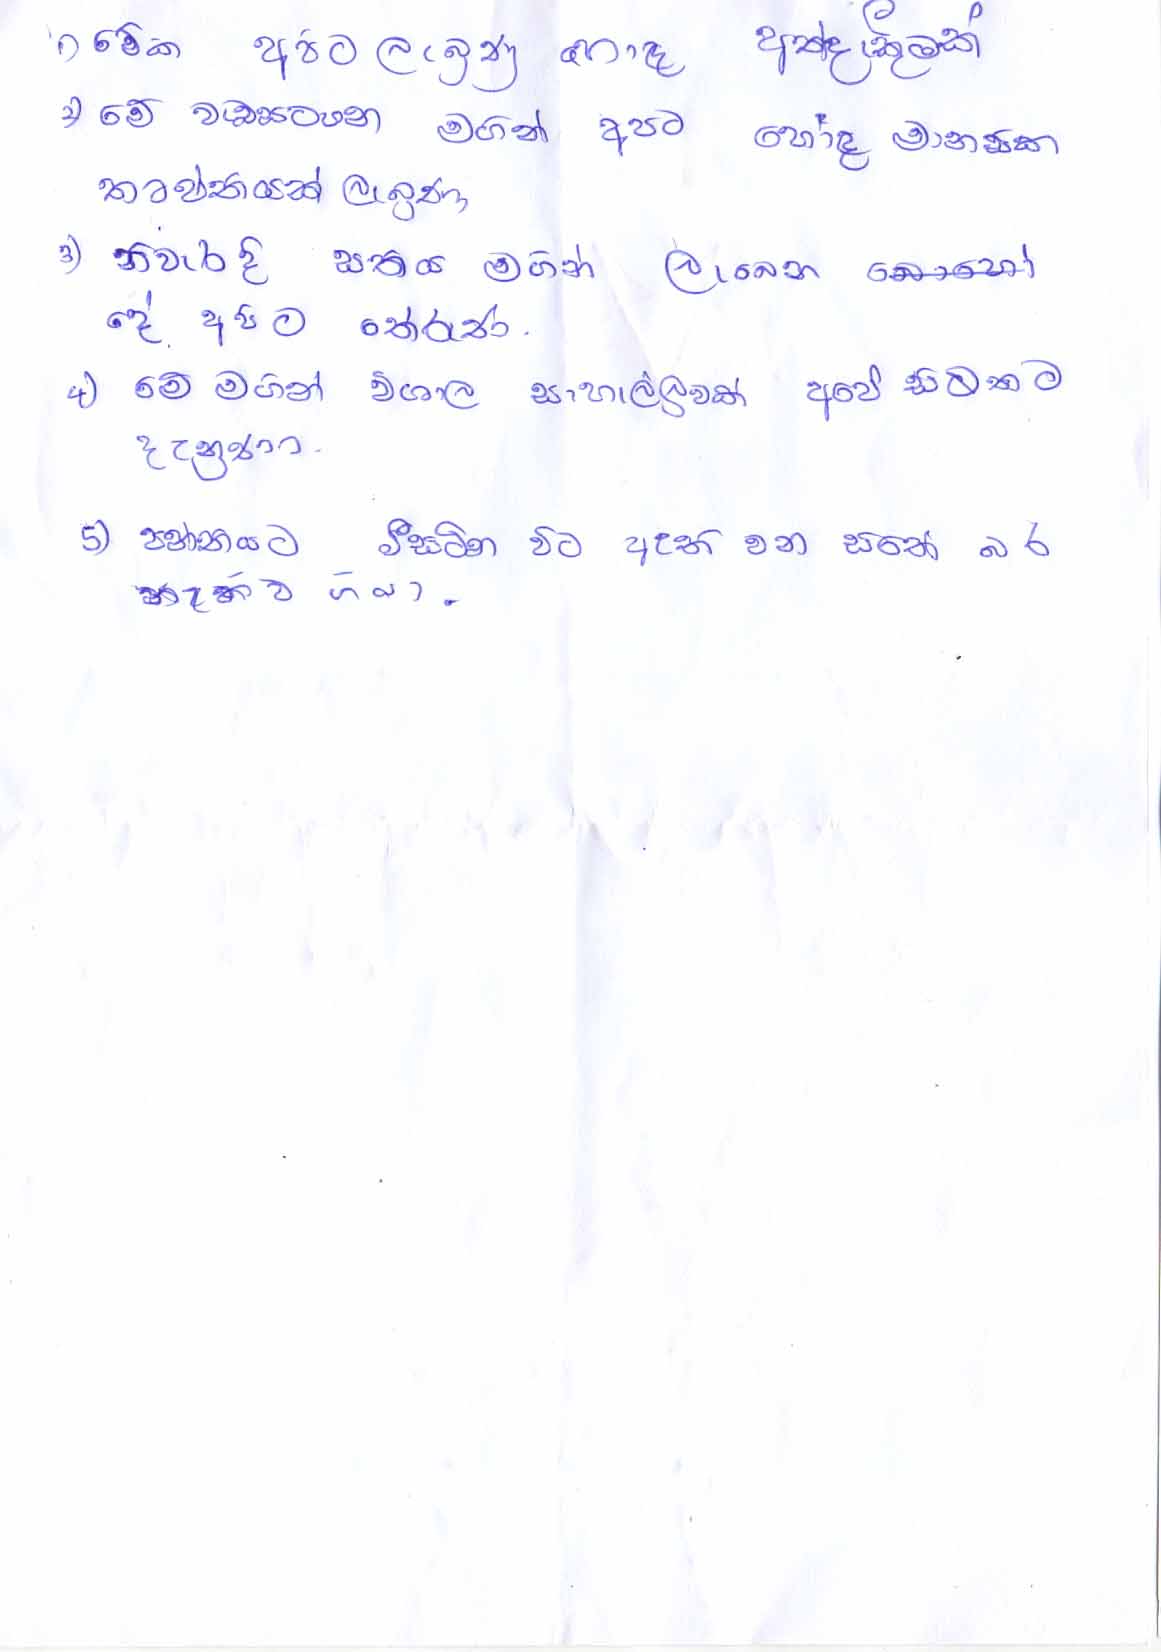 1) මේක අපිට ලැබුණු හොඳ අත්දැකීමක්
2) මේ වැඩසටහන මගින් අපට හොඳ මානසික
තෘප්තියක් ලැබුණා
3) නිවැරදි සතිය මගින් ලැබෙන බොහෝ
දේ අපිට තේරුණා.
4) මේ මගින් විශාල සැහැල්ලුවක් අපේ සිතටම
දැනුණා.
5) පන්තියට විත් විට ඇති වන සිතේ බර
නැතිව ගියා.